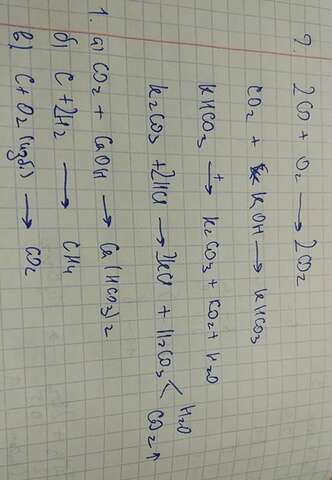 2. 2CO + O₂ → 2CO₂
CO₂ + KOH → KHCO₃
KHCO₃ →ᵗ K₂CO₃ + CO₂ + H₂O
K₂CO₃ + 2HCl → 2KCl + H₂CO₃ < H₂O CO₂↑
1. а) CO₂ + CaOH → Ca(HCO₃)₂
б) C + 2H₂ → CH₄
в) C + O₂ (изб.) → CO₂